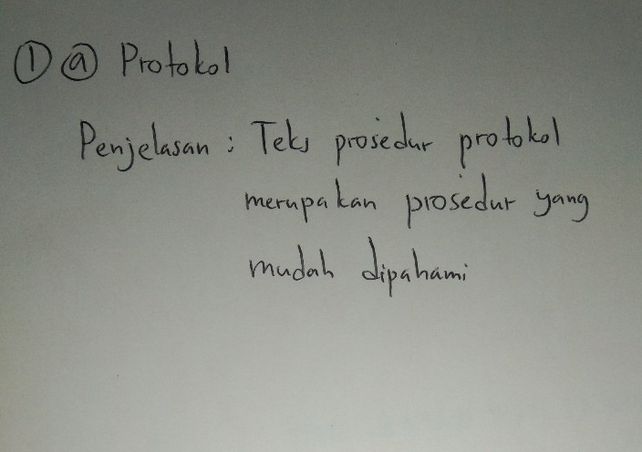 ① ⓐ Protokol
Penjelasan : Teks prosedur protokol
merupakan prosedur yang
mudah dipahami